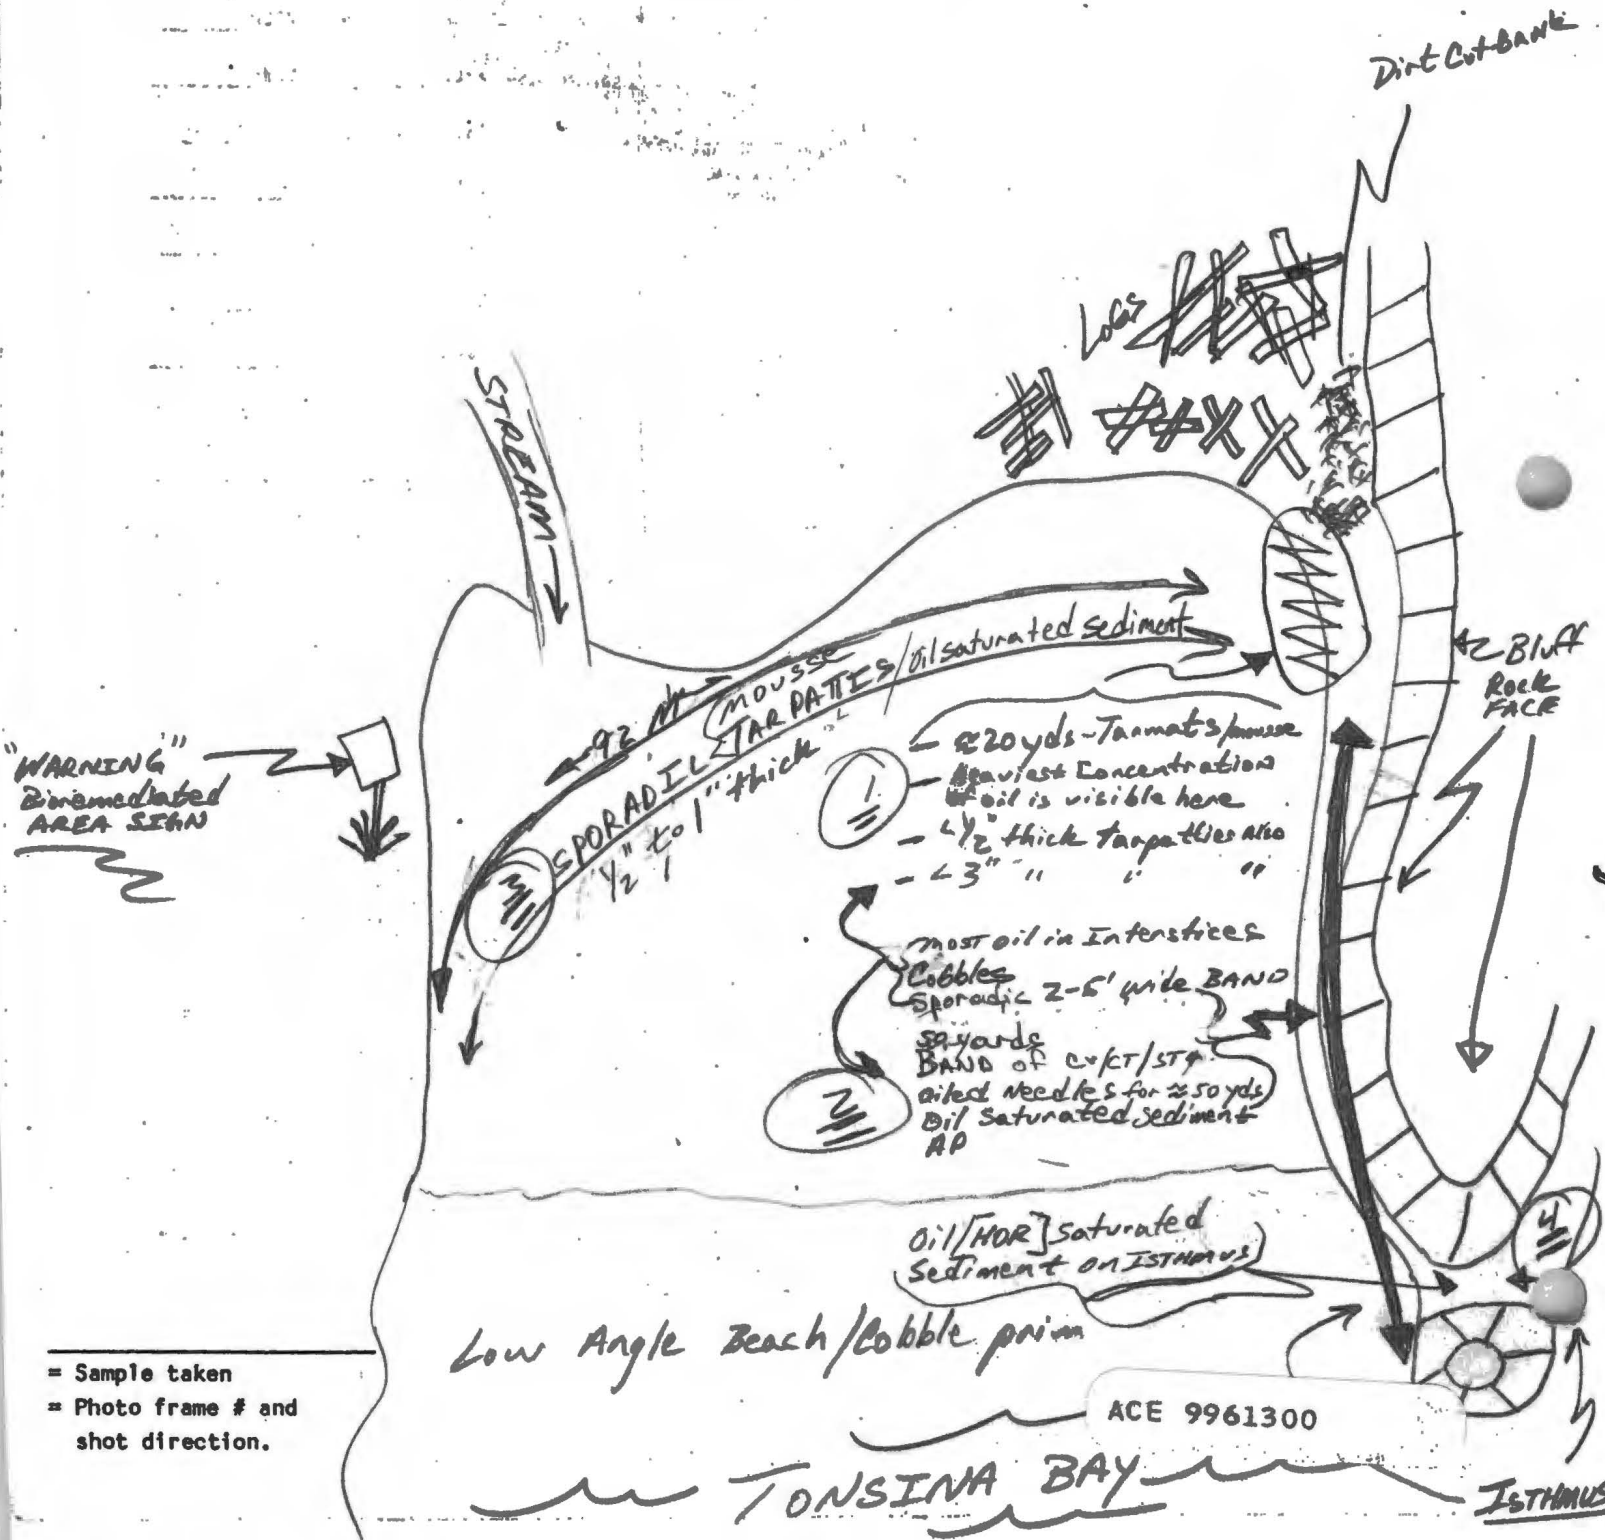 Dirt Cut-BANK
Logs
STREAM
mousse
SPORADIC TARPATTIES/Oil saturated sediment
1/2" to 1" thick
92 M
Bluff
Rock
FACE
"WARNING"
Bioremediated
AREA SIGN
1
- ≈20yds-Tarmats/mousse
- Heaviest Concentration
of oil is visible here
- <1/2" thick tarpatties also
- <3" " " "
most oil in Interstices
Cobbles
Sporadic 2-5' wide BAND
50 yards
BAND of CV/CT/ST &
oiled Needles for ≈50 yds
Oil Saturated sediment
AP
2
3
4
Oil [HOR] Saturated
Sediment on ISTHMUS
Low Angle Beach/Cobble prim
= Sample taken
= Photo frame # and
shot direction.
ACE 9961300
TONSINA BAY
ISTHMUS